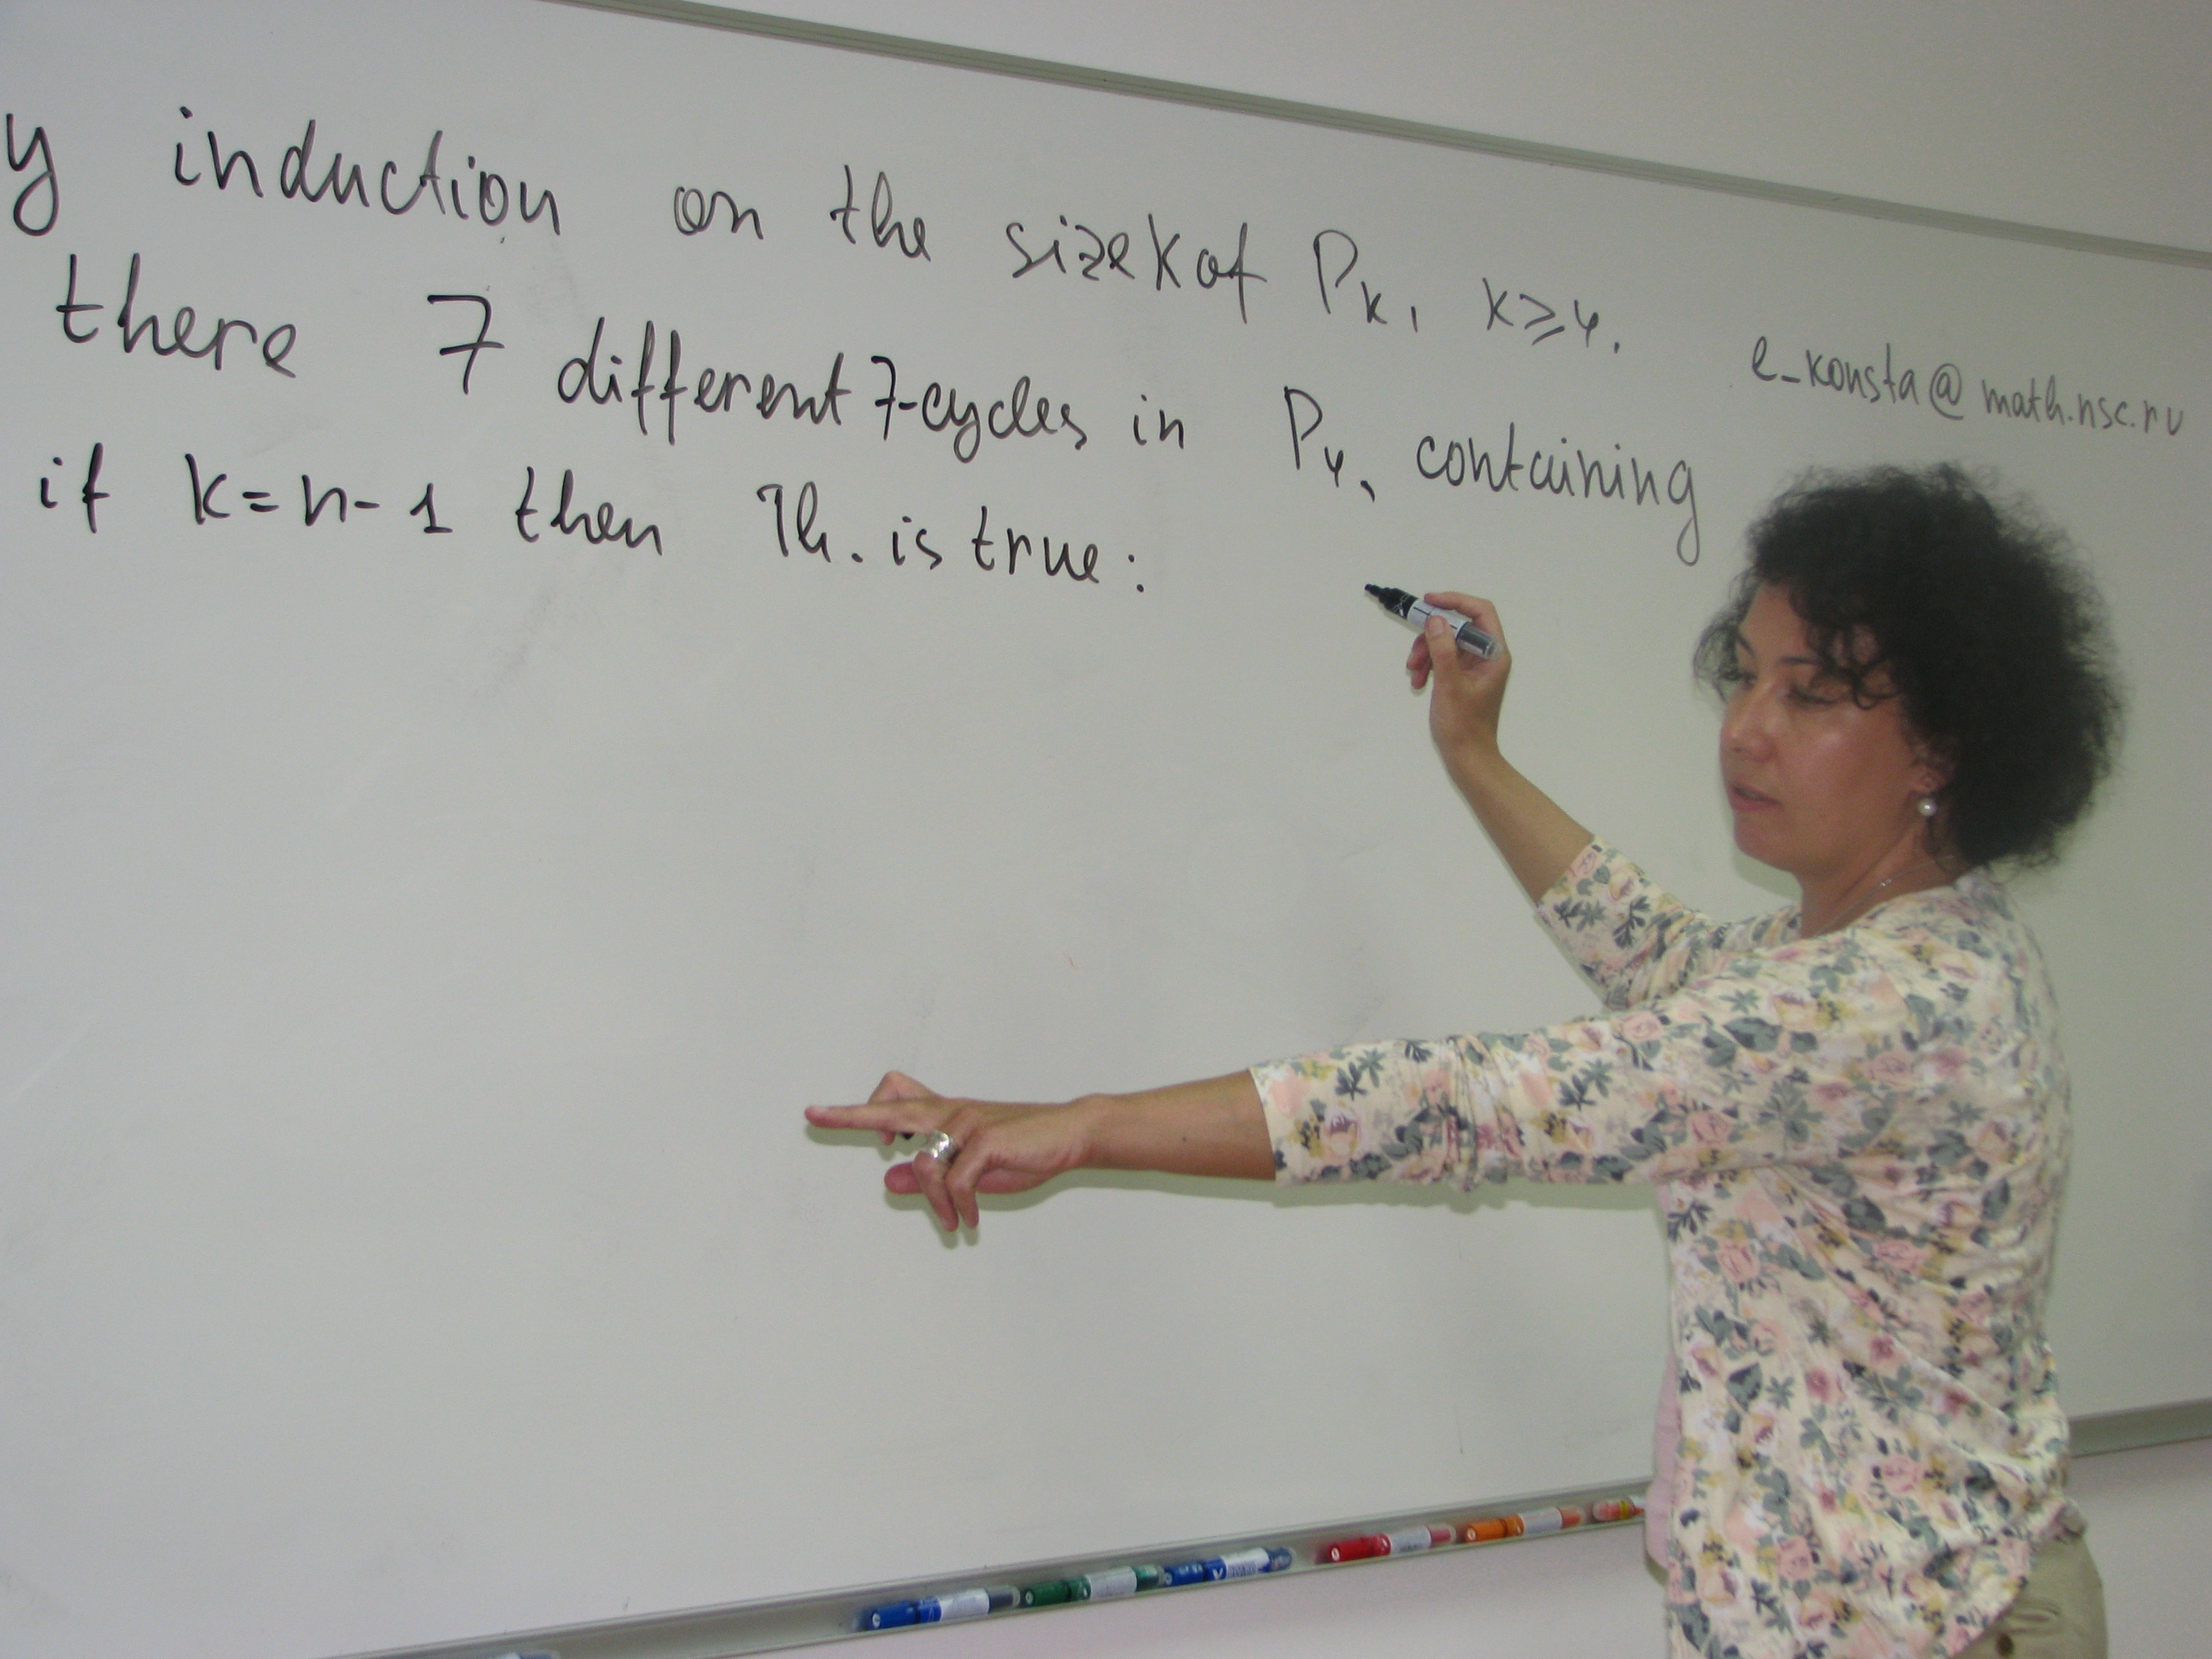 y induction on the size k of P_k, k ≥ 4.
e_konsta@math.nsc.ru
there 7 different 7-cycles in P_4, containing
if k = n - 1 then Th. is true: